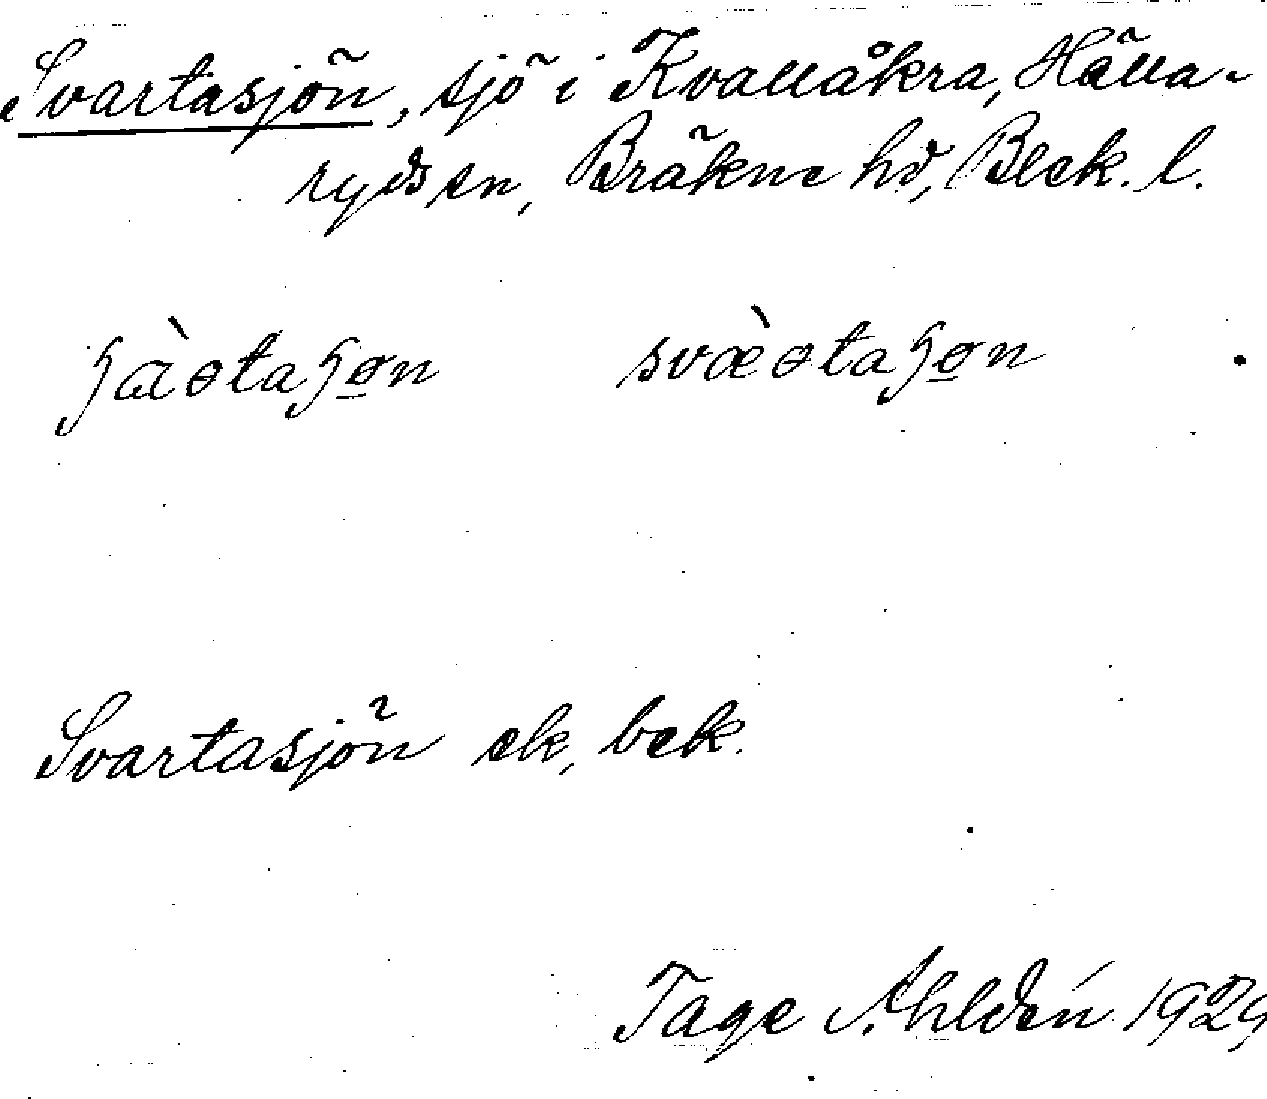 Svartasjön, sjö i Kvallåkra, Hälla-
ryds sn, Bräkne hd, Blek. l.
Svartasjön ek, bek.
Tage Ahldén 1929